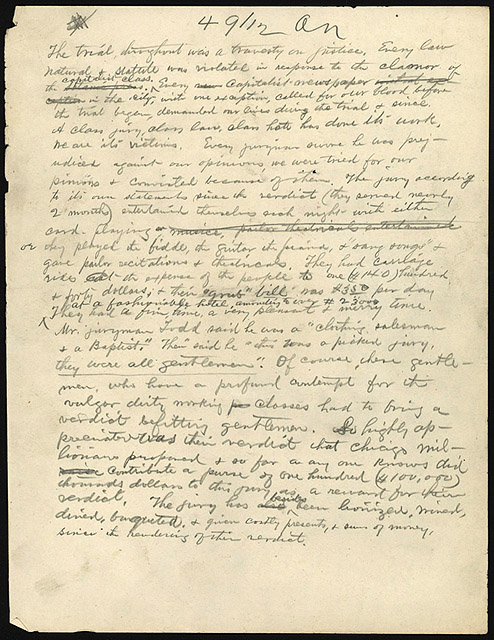 49 1/2 An
The trial throughout was a travesty on justice. Every law
natural & statute was violated in response to the clamor of
capitalist class.
the Every Capitalist newspaper
in the city, with one exception, called for our blood before
the trial began, demanded our lives during the trial & since.
A class jury, class law, class hate has done its work,
We are its victims. Every juryman swore he was prej-
udiced against our opinions we were tried for our
opinions & convicted because of them. The jury according
to its own statements since the verdict (they served nearly
2 months) entertained themselves each night with either
card playing or music, parlor theatricals entertained
or they played the fiddle, the guitar the piano, & sang songs" &
gave parlor recitations & theatricals. They had carriage
rides at the expense of the people to one ($140) hundred
& forty dollars; & their "grub" bill" was $3.50 per day
at a fashionable hotel, amounting to over $2300
They had a fine time, a very pleasant & merry time.
Mr. juryman Todd said he was a "clothing salesman
& a Baptist". Then said he "this was a picked jury,
they were all gentlemen". Of course, these gentle-
men, who have a profound contempt for the
vulgar dirty working classes had to bring a
verdict befitting gentlemen. So highly ap-
preciated was their verdict that chicago mil-
lionaires proposed & so far as any one knows did
contribute a purse of one hundred ($100,000)
thousands dollars to this jury as a reward for their
verdict. The jury has besides been lionized, wined,
dined, banqueted, & given costly presents, & sums of money,
since the rendering of their verdict.